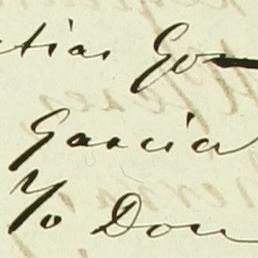 tias Go
Garcia
Y/o Don